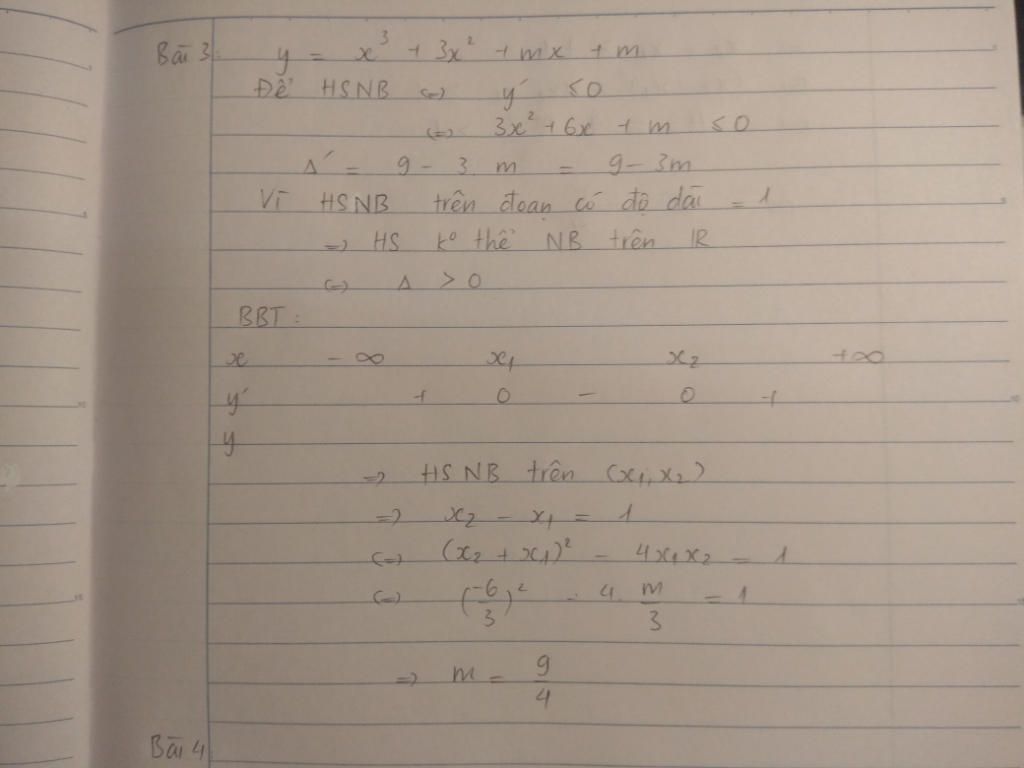 Bài 3: y = x³ + 3x² + mx + m
Để HSNB <=> y' ≤ 0
<=> 3x² + 6x + m ≤ 0
Δ' = 9 - 3 m = 9 - 3m
Vì HSNB trên đoạn có độ dài = 1
=> HS k° thể NB trên IR
<=> Δ > 0
BBT:
x - ∞ x₁ x₂ +∞
y' + 0 - 0 +
y
=> HSNB trên (x₁, x₂)
=> x₂ - x₁ = 1
<=> (x₂ + x₁)² - 4x₁x₂ = 1
<=> (-6/3)² - 4. m/3 = 1
=> m = 9/4
Bài 4: